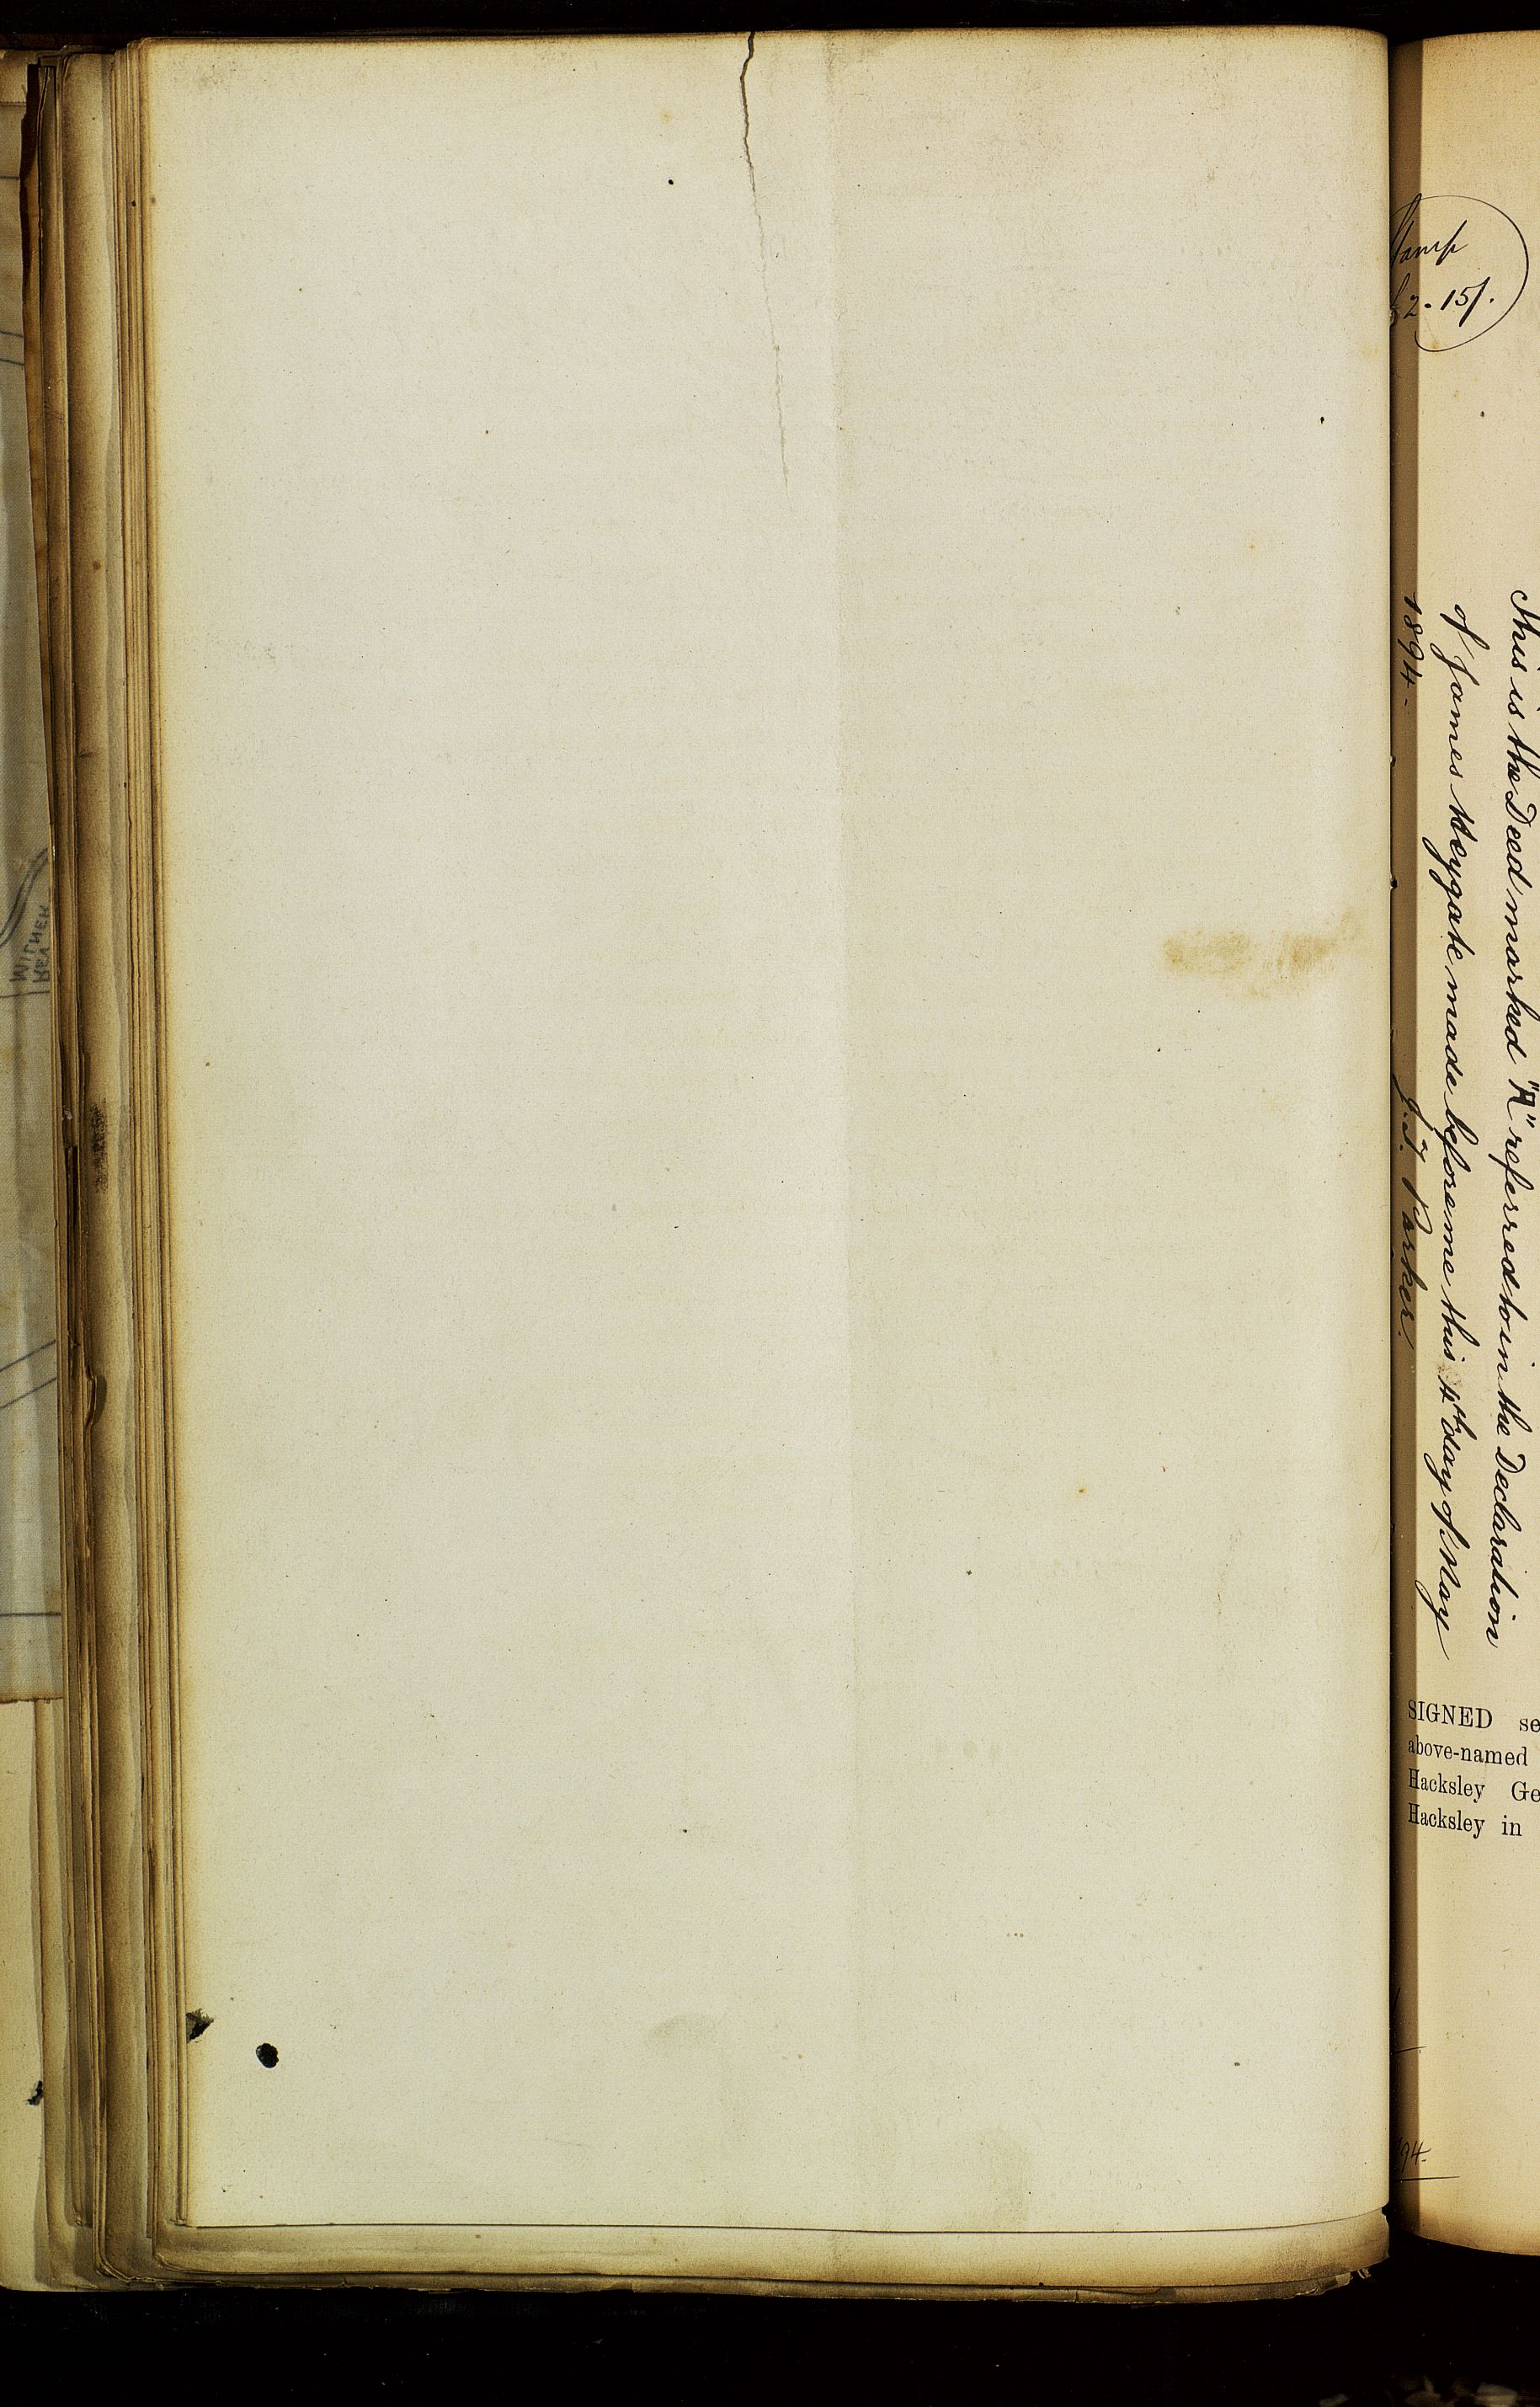 Stamp
£2-15/.
This is the Deed marked "A" referred to in the Declaration
of James Heygate made before me this 4th day of May
1894-
J. T. Parker.
SIGNED se
above-named
Hacksley Ge
Hacksley in
94.